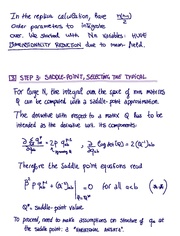 In the replica calculation, have n(n-1)/2
order parameters to integrate
over. We started with Nn variables: HUGE
DIMENSIONALITY REDUCTION due to mean-field.
[3] STEP 3: SADDLE-POINT, SELECTING THE TYPICAL
For large N, the integral over the space of nxn matrices
Q can be computed with a saddle-point approximation.
The derivative with respect to a matrix Q has to be
intended as the derivative wrt its components:
Therefore the saddle point equations read
for all a<b
Q* = saddle-point value
To proceed, need to make assumptions on structure of q_ab at the
saddle point: a "VARIATIONAL ANSATZ".